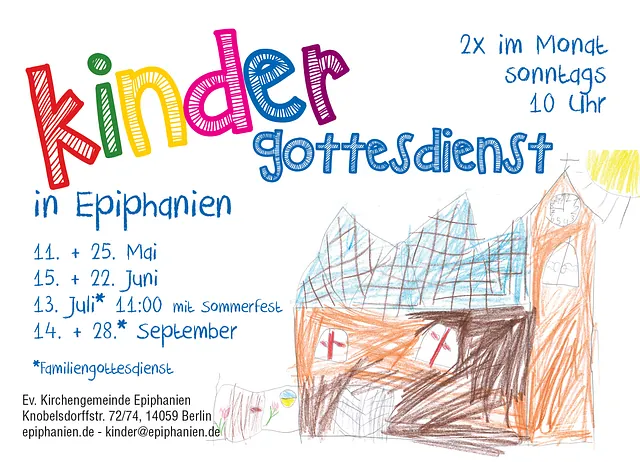 kinder
gottesdienst
2x im Monat
sonntags
10 Uhr
in Epiphanien
11. + 25. Mai
15. + 22. Juni
13. Juli* 11:00 mit Sommerfest
14. + 28.* September
*Familiengottesdienst
Ev. Kirchengemeinde Epiphanien
Knobelsdorffstr. 72/74, 14059 Berlin
epiphanien.de - kinder@epiphanien.de